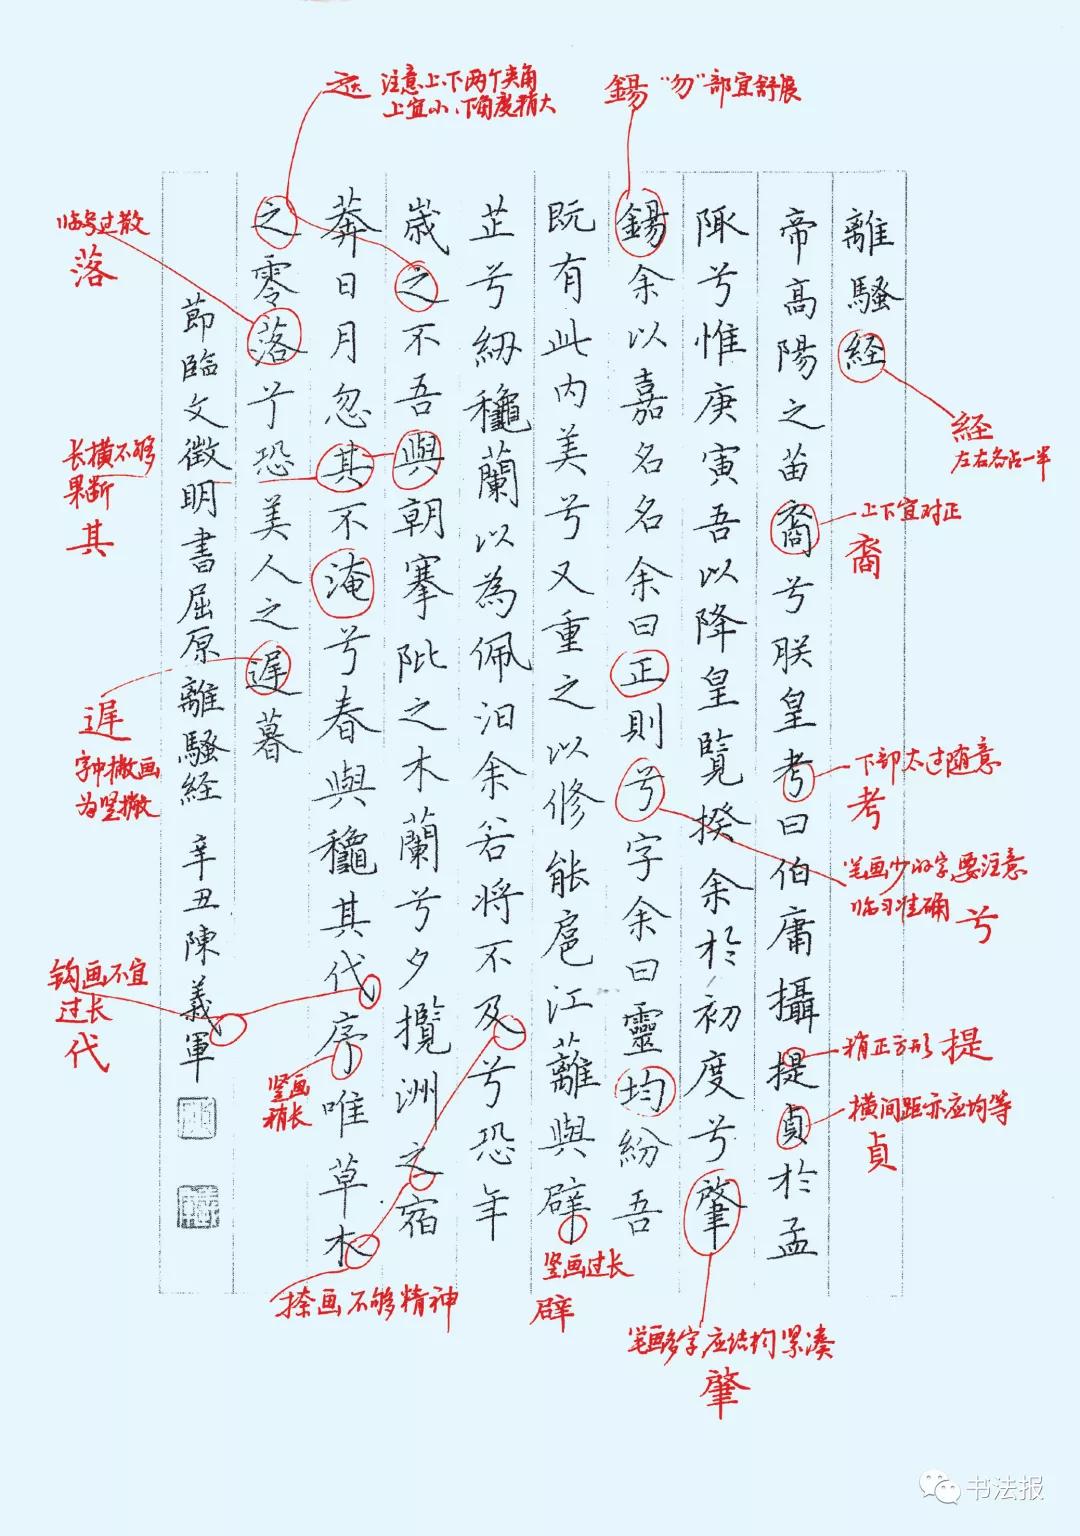 離騷経
帝高陽之苗裔兮朕皇考曰伯庸攝提貞於孟
陬兮惟庚寅吾以降皇覽揆余於初度兮肇
錫余以嘉名名余曰正則兮字余曰靈均紛吾
既有此内美兮又重之以修能扈江蘺與辟
芷兮紉龝蘭以為佩汨余若将不及兮恐年
歲之不吾與朝搴阰之木蘭兮夕攬洲之宿
莽日月忽其不淹兮春與龝其代序唯草木
之零落兮恐美人之遲暮
節臨文徵明書屈原離騷経 辛丑陳義軍
之 注意上下两个夹角
上宜小、下角度稍大
錫 “勿”部宜舒展
経
左右各占一半
上下宜对正
裔
下部太过随意
考
笔画少的字,要注意
临习准确 兮
稍正方形 提
横间距亦应均等
貞
笔画多字,应结构紧凑
肇
竖画过长
辟
捺画不够精神
竖画
稍长
钩画不宜
过长
代
遲
字中撇画
为竖撇
长横不够
果断
其
临写过散
落
书法报